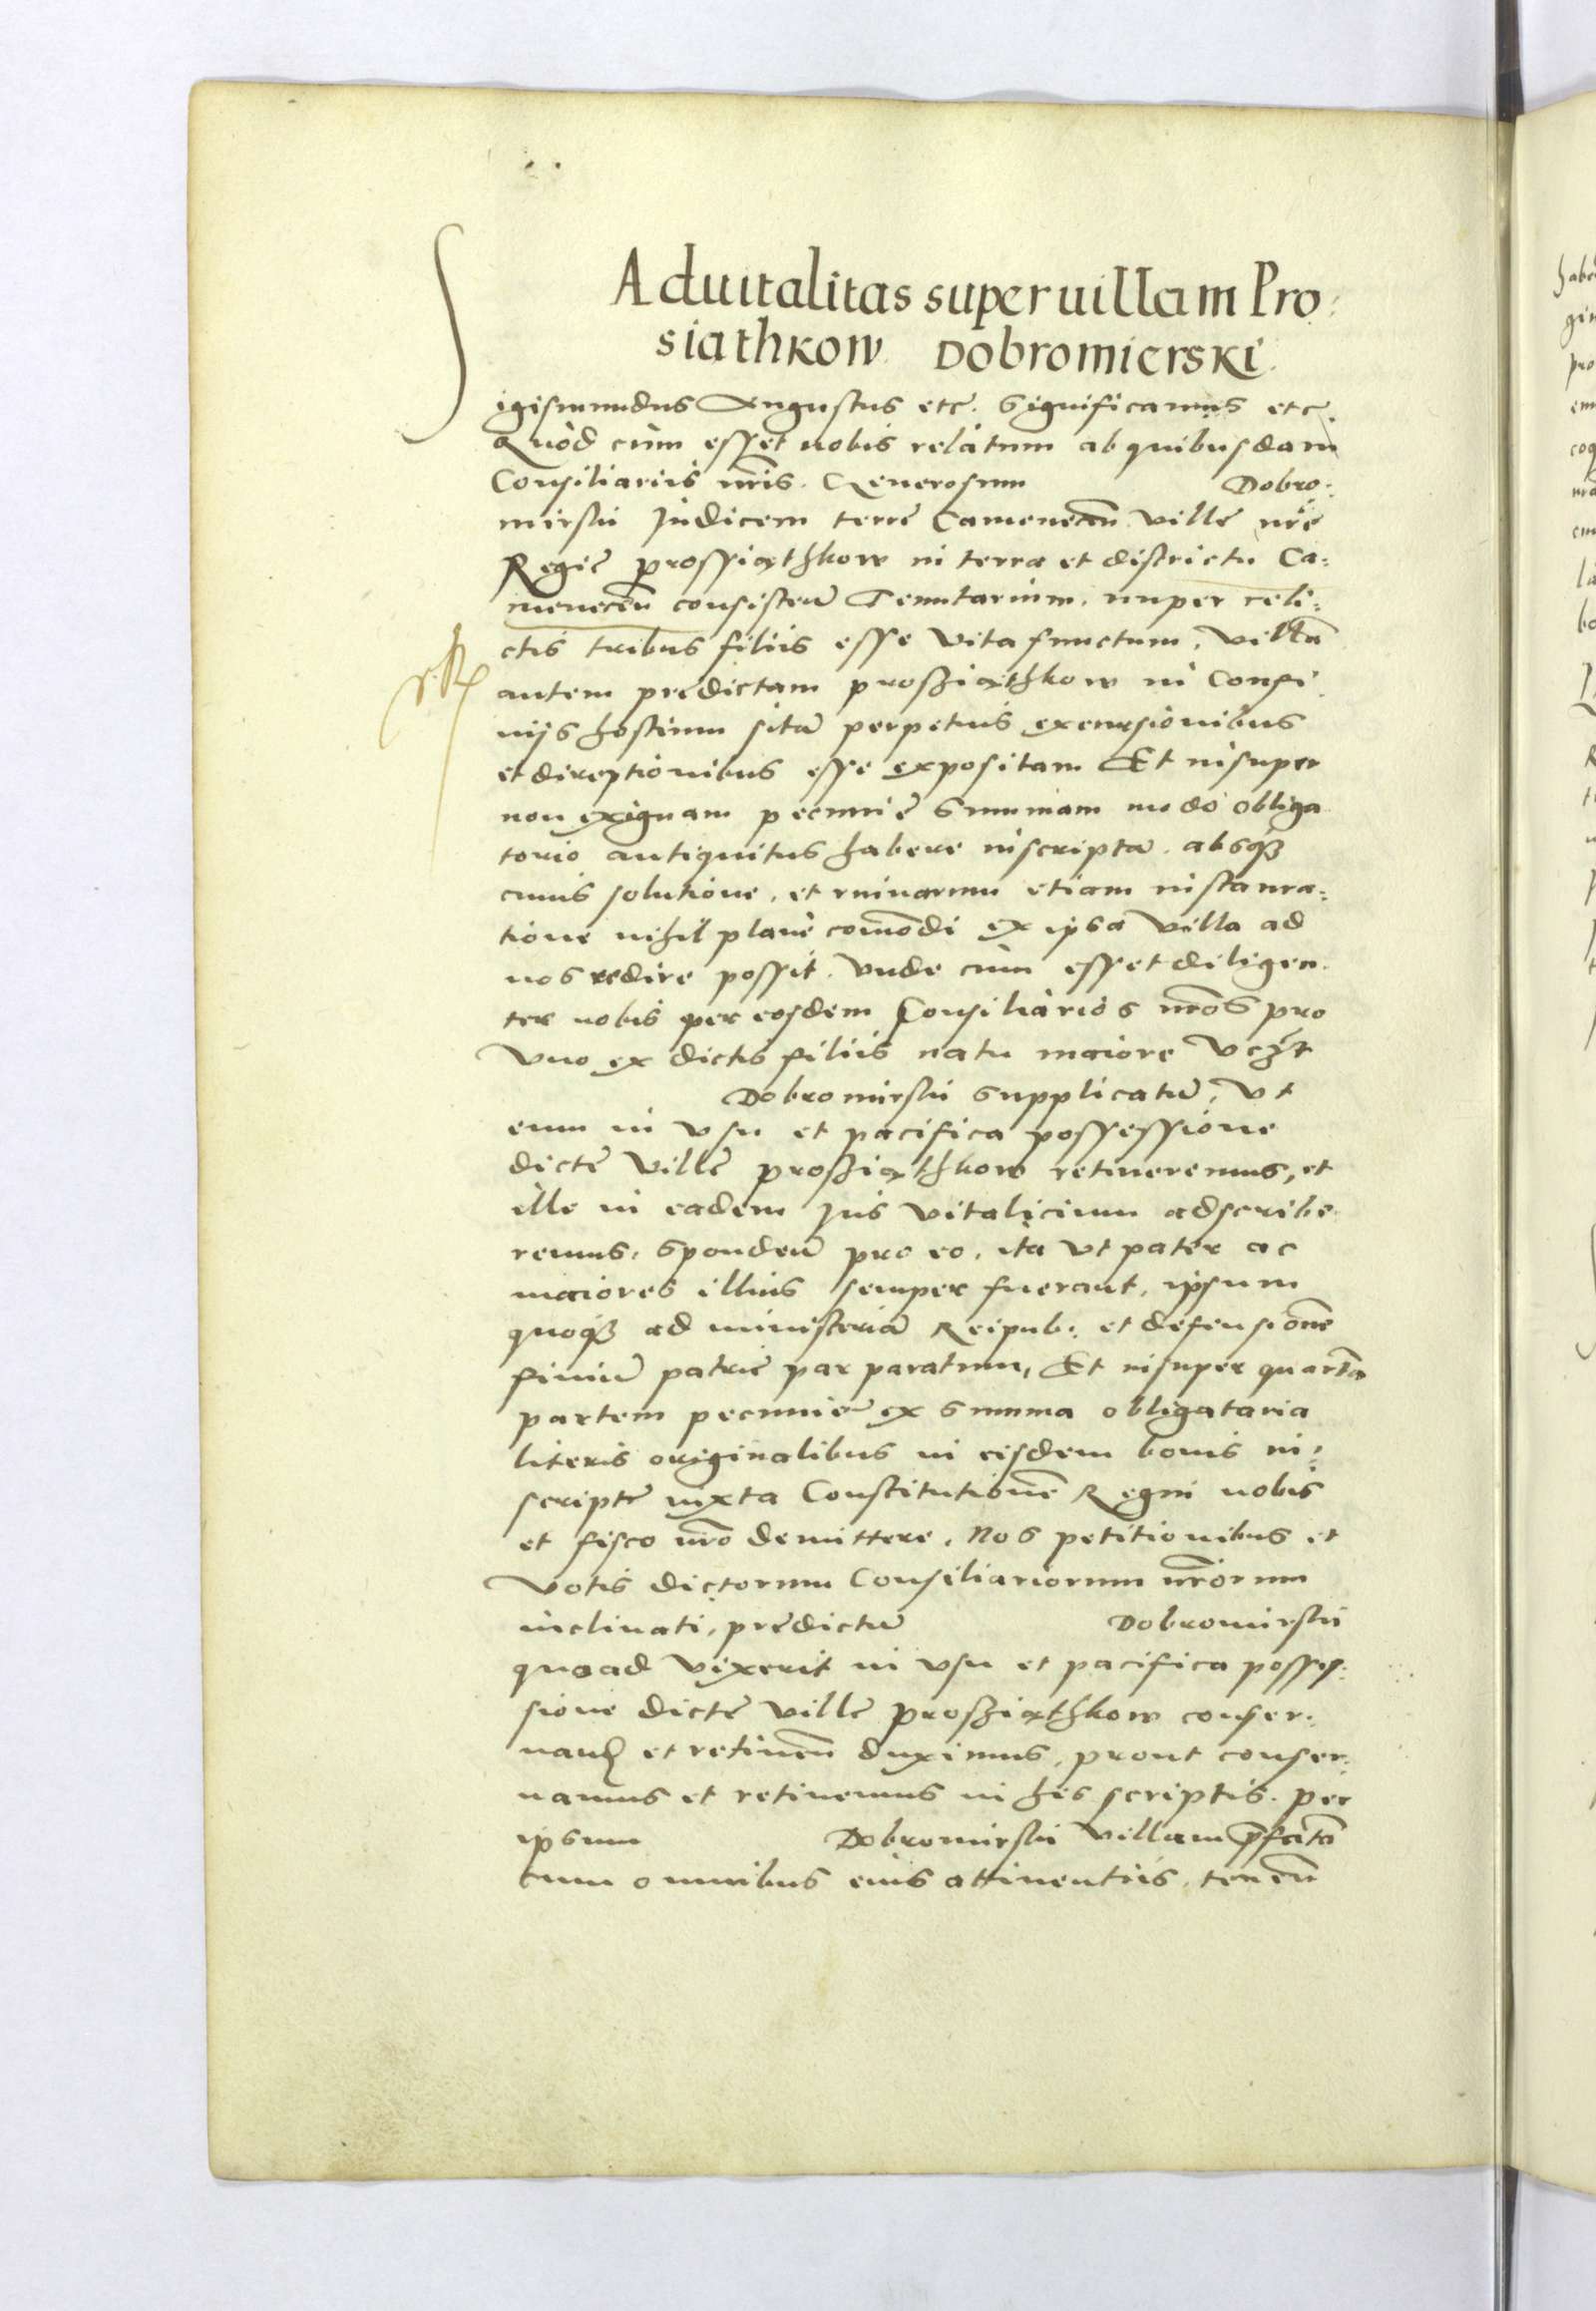 Aduitalitas super uillam Pro:
siathkow Dobromierski.
Sigismundus Augustus etc. Significamus etc.
Quod cùm esset nobis relatum ab quibusdam
Consiliariis nris. Generosum Dobro:
mirski Judicem terrę Camenecen villę nrę
Regię prossiathkow in terra et districtu Ca:
menecen consisten Tenutarium. nuper reli:
ctis tribus filiis esse vita functum, villa
autem prędictam prosziathkow in Confi
nijs hostium sita perpetuis excursionibus
et direptionibus esse expositam Et insuper
non exiguam pecunię summam modo obliga
torio antiquitus habere inscripta. absq3
cuius solutione, et ruinarum etiam instaura:
tione nihil planè comodi ex ipsa villa ad
nos redire possit. Vnde cùm esset diligen.
ter nobis per eosdem Consiliarios nros pro
Vno ex dictis filiis natu maiore vczt
Dobromirski supplicatu, Vt
eum in vsu et pacifica possessione
dictę villę prosziathkow retineremus, et
ille in eadem Jus vitalicium adscribe
remus. sponden pro eo, ita vt pater ac
maiores illius semper fuerant, ipsum
quoq3 ad ministeria Reipub: et defensione
finiu patrię par paratum, Et insuper quarta
partem pecunię ex summa obligataria
literis originalibus in eisdem bonis in:
scriptę iuxta Constitutione Regni nobis
et fisco nro demittere. Nos petitionibus et
votis dictorum Consiliariorum nrorum
inclinati, prędictu Dobromirski
quoad vixerit in vsu et pacifica posses:
sione dictę villę prosziathkow conser:
uand et retinen duximus, prout conser:
uamus et retinemus in his scriptis. per
ipsum Dobromirski villam pfata
cum omnibus eius attinentiis, tenen